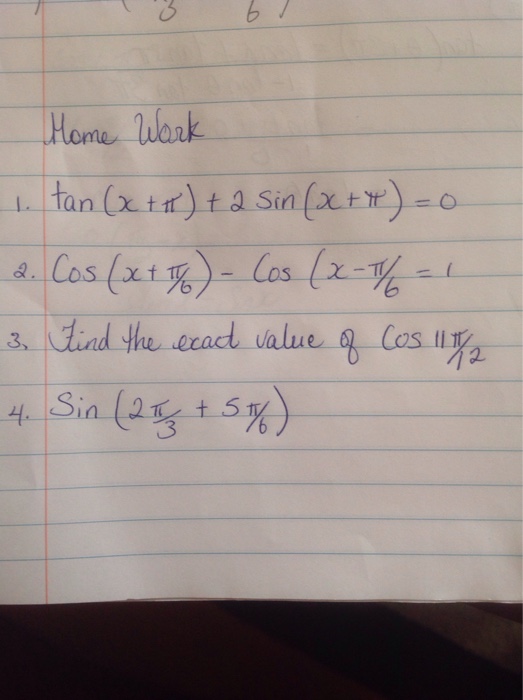 3 6
Home Work
1. tan (x + π) + 2 Sin (x + π) = 0
2. Cos (x + π/6) - Cos (x - π/6 = 1
3. Find the exact value of Cos 11π/12
4. Sin (2π/3 + 5π/6)